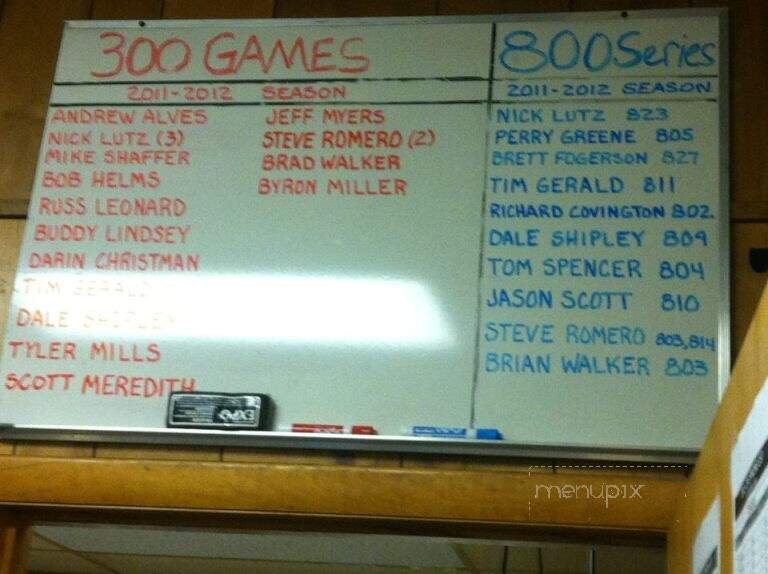 300 GAMES
2011-2012 SEASON
ANDREW ALVES
NICK LUTZ (3)
MIKE SHAFFER
BOB HELMS
RUSS LEONARD
BUDDY LINDSEY
DARIN CHRISTMAN
TIM GERALD
DALE SHIPLEY
TYLER MILLS
SCOTT MEREDITH
JEFF MYERS
STEVE ROMERO (2)
BRAD WALKER
BYRON MILLER
800 Series
2011-2012 SEASON
NICK LUTZ 823
PERRY GREENE 805
BRETT FOGERSON 827
TIM GERALD 811
RICHARD COVINGTON 802.
DALE SHIPLEY 809
TOM SPENCER 804
JASON SCOTT 810
STEVE ROMERO 803,814
BRIAN WALKER 803
EXPO
menupix